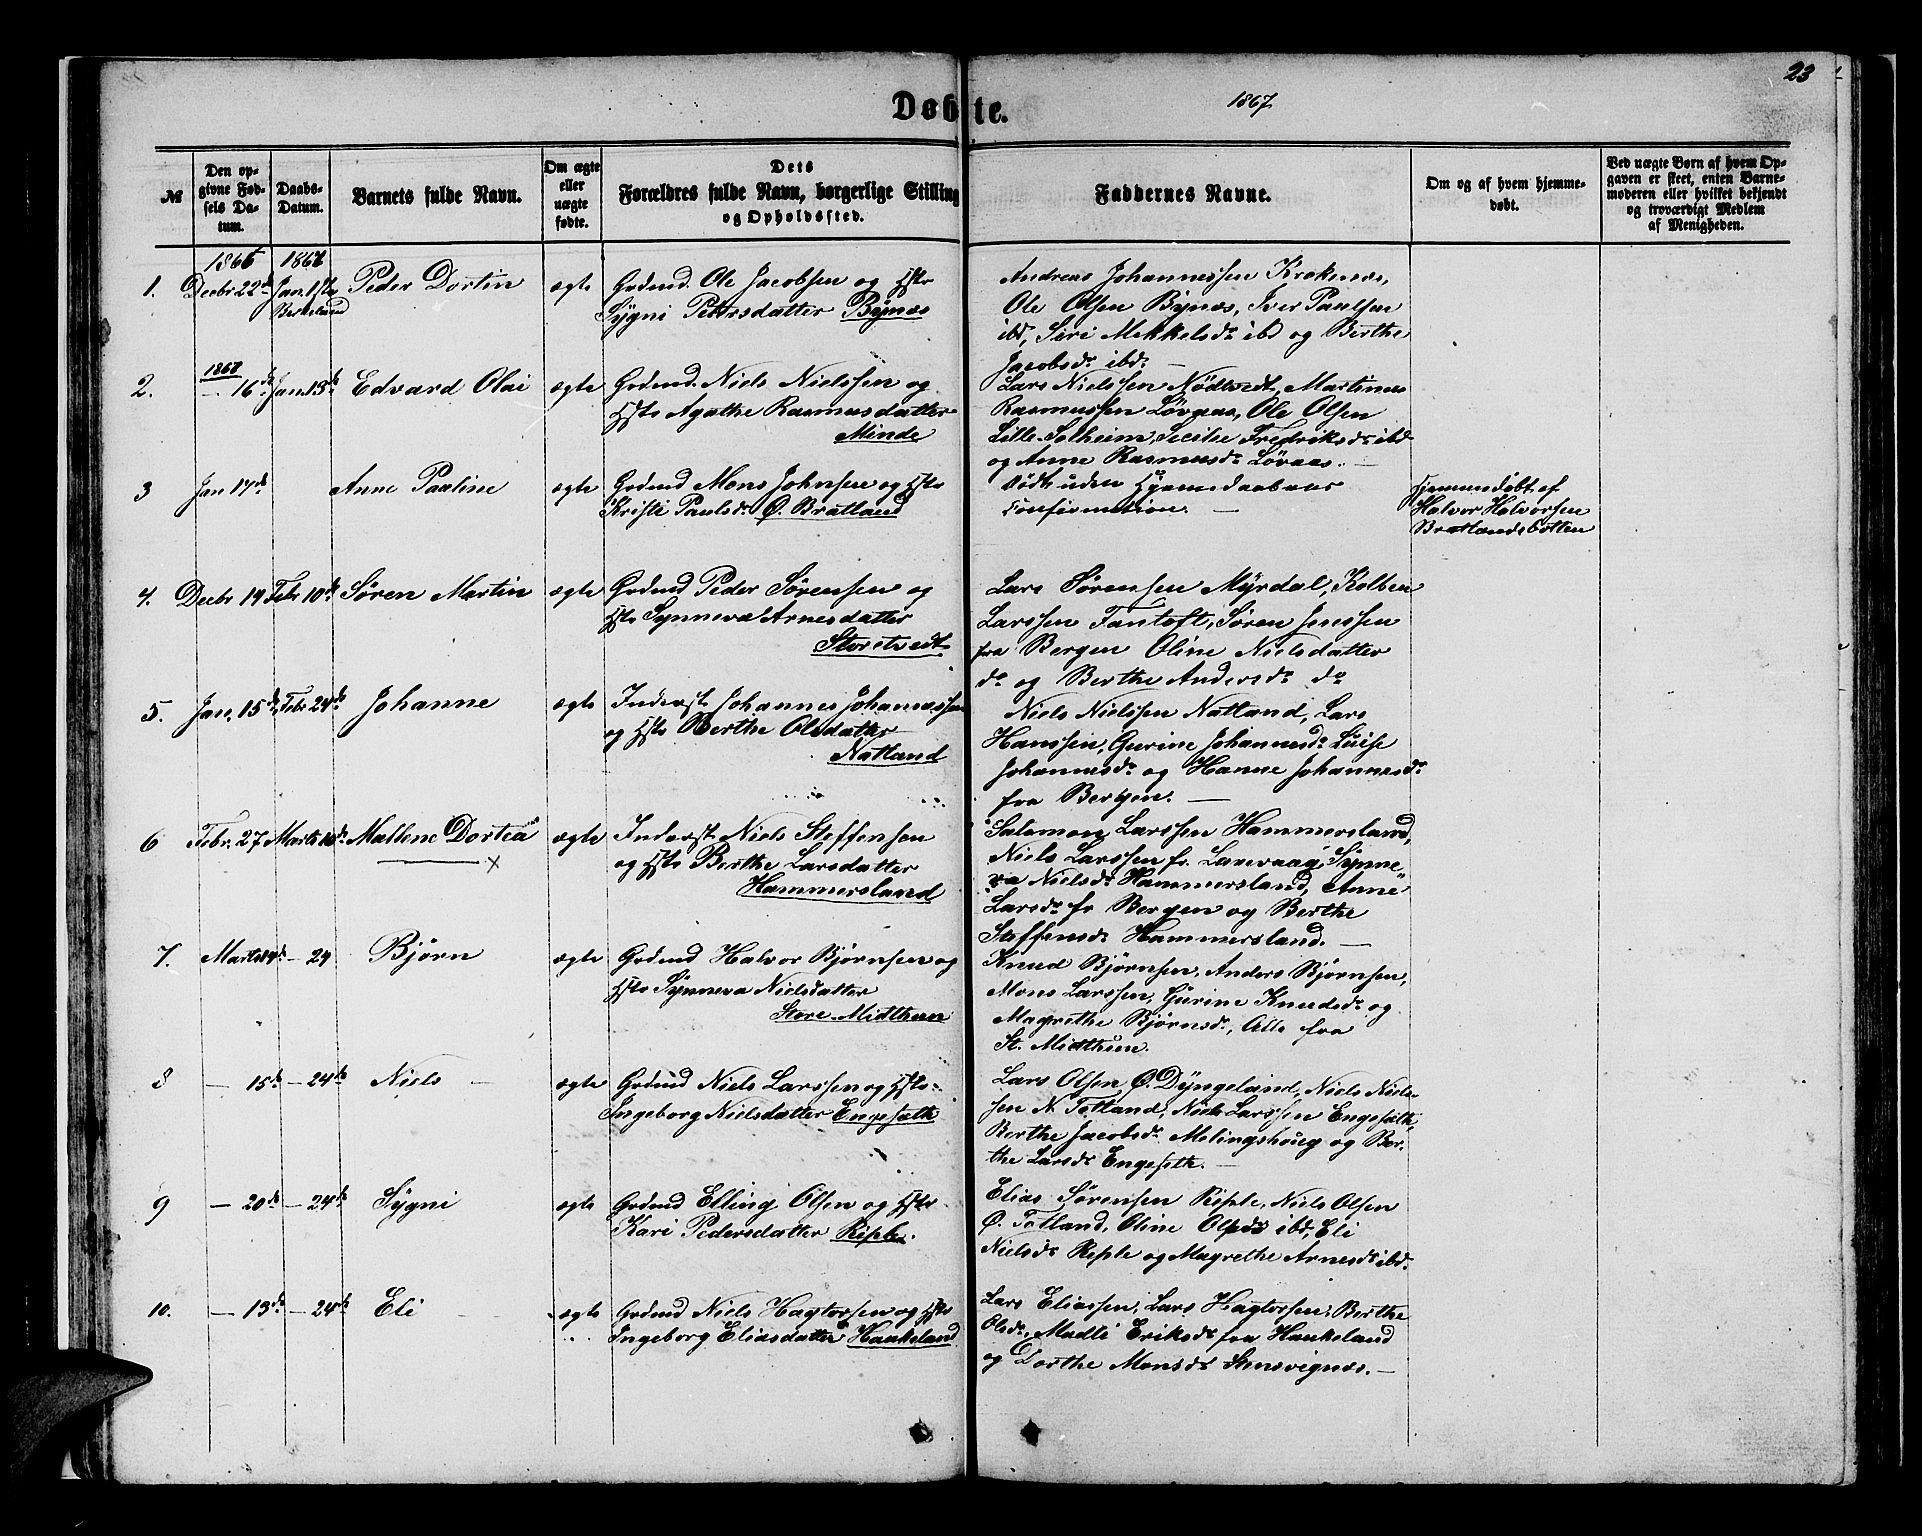 23
Døbte.
1867
№
Den opgivne Fødsels Datum.
Daabs-Datum.
Barnets fulde Navn.
Om ægte eller uægte fødte.
Dets Forældres fulde Navn, borgerlige Stilling og Opholdssted.
Faddernes Navne.
Om og af hvem hjemmedøbt.
Ved uægte Børn af hvem Opgaven er skeet, enten Barnemoderen eller hvilket bekjendt og troværdigt Medlem af Menigheden.
1866 1867
1. Decbr 22de Jan. 1ste Birkeland Peder Dortin ægte Grdmd. Ole Jacobsen og Hst
Sygni Petersdatter Bynæs
Andreas Johannessen Kroknæs,
Ole Olsen Bynæs, Iver Paulsen
ibd, Siri Mikkelsdr ibd og Berthe
Jacobsdr ibd. —
1867
2. — 16de Jan. 13de Edvard Olai ægte Grdmd. Niels Nielssen og
Hst Agathe Rasmusdatter
Minde
Lars Nielssen Nödtvedt, Martinus
Rasmussen Løvaas, Ole Olsen
Lille-Solheim, Secilie Fredriksdr ibd
og Anne Rasmusdr Løvaas. —
3 Jan 17de Anne Pauline ægte Grdmd Mons Johnsen og Hst
Kristi Paulsdr Ø. Bratland
död uden Hjemmedaabens
Confirmation. —
Hjemmedöbt af
Halvor Halvorsen
Bratlandsbotten
4. Decbr 19 Febr 10de Søren Martin ægte Grdmd Peder Sørensen og
Hst Synneva Arnesdatter
Storetvedt
Lars Sørenssen Myrdal, Kolben
Larssen Fantoft, Søren Jenssen
fra Bergen Oline Nielsdatter
do og Berthe Andersdr do
5. Jan. 15de Febr 24de Johanne ægte Inderst Johannes Johannessen
og Hst Berthe Olsdatter
Natland
Niels Nielssen Natland, Lars
Hanssen, Gurine Johannesdr Luise
Johannesdr og Hanne Johannesdr
fra Bergen. —
6 Febr. 27 Marts 10de Mallene Dortea ægte Inderst Niels Steffensen
og Hst Berthe Larsdatter
Hammersland
Salamon Larssen Hammersland,
Niels Larssen fr. Laxevaag, Synne"
va Nielsdr Hammersland, Anne"
Larsdr fr Bergen og Berthe
Steffensdr Hammersland. —
7. Marts 14de — 24 Bjørn ægte Grdmd Halvor Bjørnsen og
Hst Synneva Nielsdatter
Store-Midthun
Knud Bjørnsen, Anders Bjørnsen,
Mons Larssen, Gurine Knudsdr og
Magrethe Bjørnsdr, Alle fra
St. Midthun.
8 — 15de — 24de Niels — ægte Grdmd Niels Larssen og Hst
Ingeborg Nielsdatter Engesæth
Lars Olsen Ø. Dyngeland, Niels Niels-
sen N. Totland, Niels Larssen Engesæth,
Berthe Jacobsdr Melingshoug og Ber-
the Larsdr Engesæth. —
9 — 20de — 24de Sygni ægte Grdmd Elling Olsen og Hst
Kari Pedersdatter Riple.
Elias Sørensen Riple, Niels Olsen
Ø. Totland, Oline Olsdr ibd, Eli
Nielsdr Riple og Magrethe Arnesdr ibd.
10. — 13de — 24de Eli ægte Grdmd Niels Hagtorsen og Hst
Ingeborg Eliasdatter Haukeland
Lars Eliassen, Lars Hagtorsen, Berthe
Olsdr, Madli Eriksdr fra Haukeland
og Dorthe Monsdr Stensvignæs. —